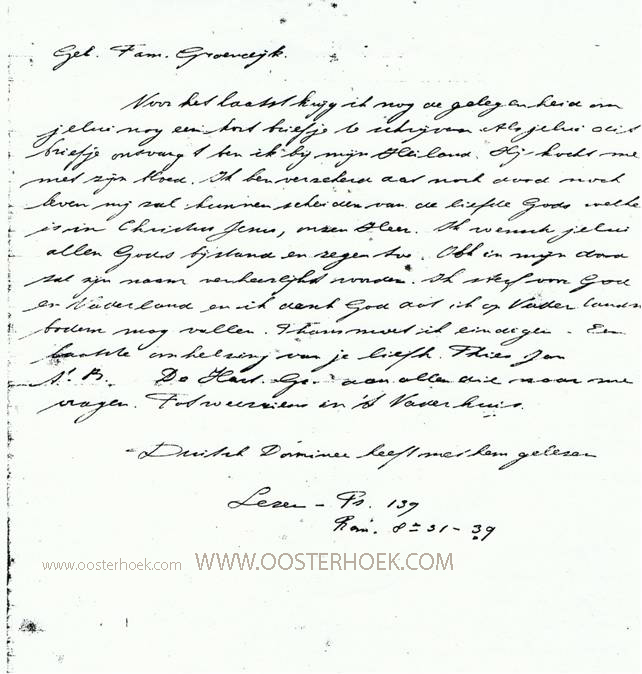 Gel. Fam. Groenedijk.
Voor het laatst krijg ik nog de gelegenheid om
jelui nog een kort briefje te schrijven. Als jelui dit
briefje ontvangt ben ik bij mijn Heiland. Hij kocht me
met zijn bloed. Ik ben verzekerd dat noch dood noch
leven mij zal kunnen scheiden van de liefde Gods welke
is in Christus Jesus, onzen Heer. Ik wensch jelui
allen Gods bijstand en zegen toe. Ook in mijn dood
zal zijn naam verheerlijkt worden. Ik sterf voor God
en Vaderland en ik dank God dat ik op Vaderlandse
bodem mag vallen. Thans moet ik eindigen. Een
laatste omhelzing van je liefh. Thies Jan
De Hart. Gr. aan allen die naar me
vragen. Tot weerziens in 't Vaderhuis.
Duitsch Dominee heeft met hem gelezen
Lezen - Ps. 139
Rom. 8 = 31 - 39
www.oosterhoek.com WWW.OOSTERHOEK.COM